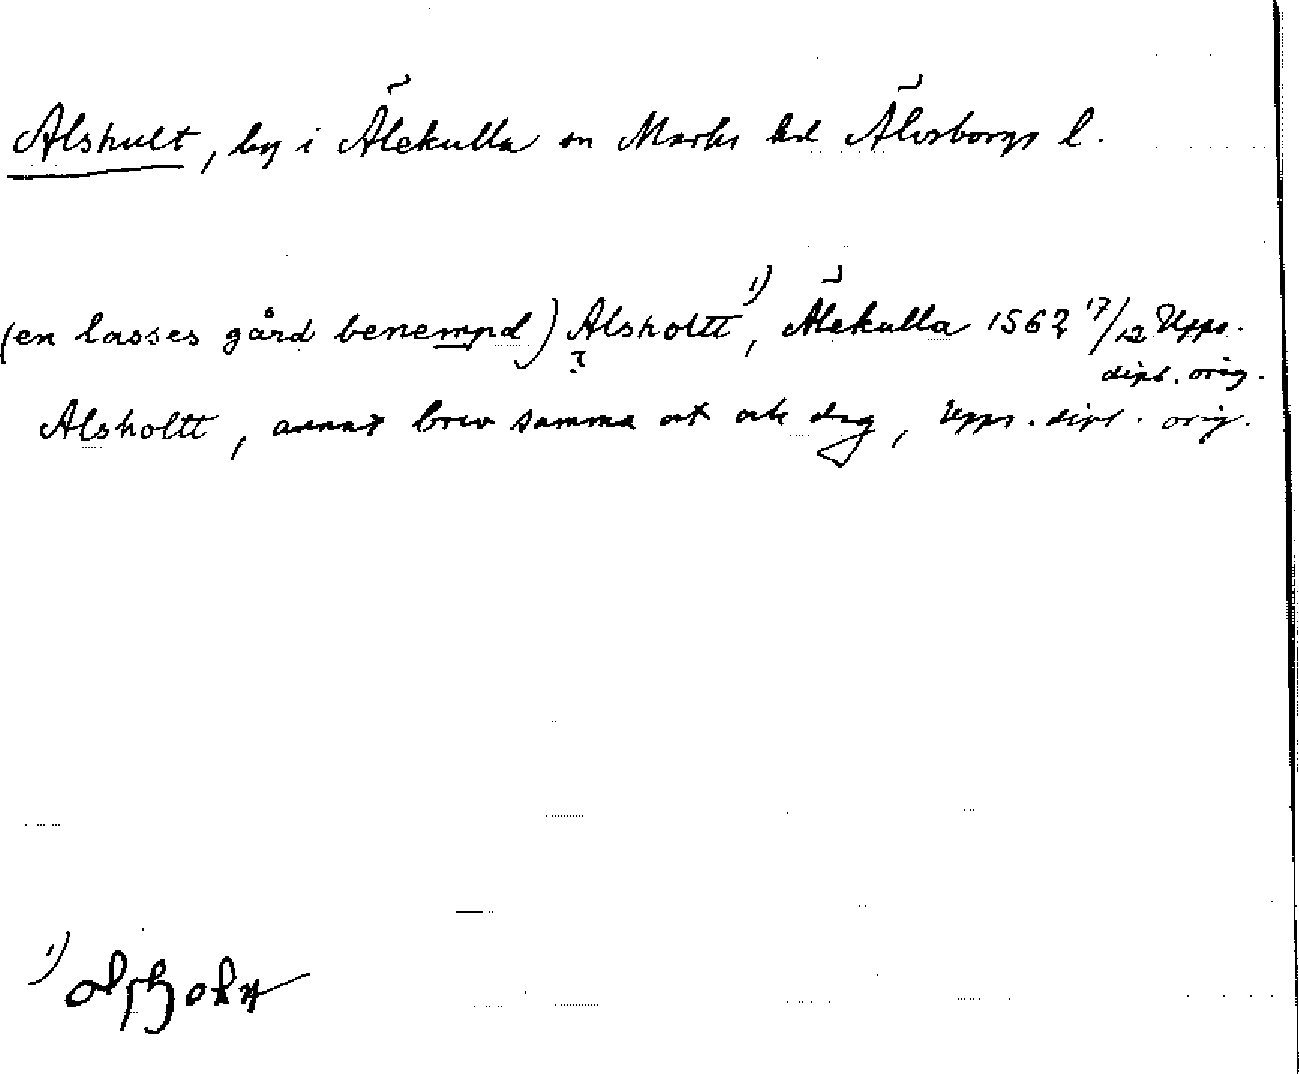 Alshult, by i Älekulla sn Marks hd Älvsborgs l.
(en lasses gård benempd) Alsholtt 1), Älekulla 1562 17/12 Upps.
dipl. orig.
Alsholtt, annat brev samma ort och dag, Upps. dipl. orig.
1) alsholtt